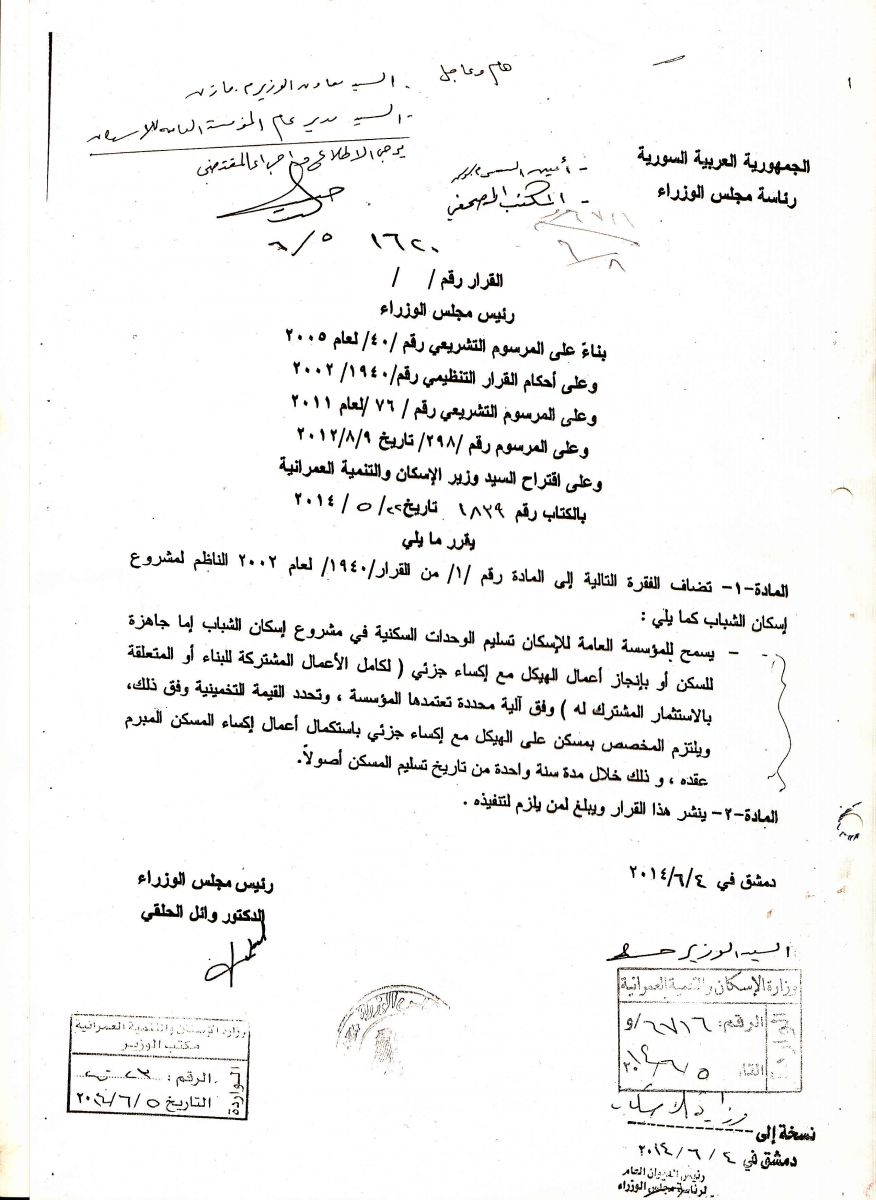 هام وعاجل
- السيد معاون الوزير م. مازن
- السيد مدير عام المؤسسة العامة للاسكان
يرجى الاطلاع واجراء المقتضى
٦/٥
الجمهورية العربية السورية
رئاسة مجلس الوزراء
- أمين السر
- المكتب الصحفي
٦/٨
١٦٢٠
القرار رقم / /
رئيس مجلس الوزراء
بناءً على المرسوم التشريعي رقم /٤٠/ لعام ٢٠٠٥
وعلى أحكام القرار التنظيمي رقم/١٩٤٠/ ٢٠٠٢
وعلى المرسوم التشريعي رقم / ٧٦ /لعام ٢٠١١
وعلى المرسوم رقم /٢٩٨/ تاريخ ٢٠١٢/٨/٩
وعلى اقتراح السيد وزير الإسكان والتنمية العمرانية
بالكتاب رقم ١٨٣٩ تاريخ ٢٢/ ٥ / ٢٠١٤
يقرر ما يلي
المادة-١- تضاف الفقرة التالية إلى المادة رقم /١/ من القرار/١٩٤٠/ لعام ٢٠٠٢ الناظم لمشروع
إسكان الشباب كما يلي :
- يسمح للمؤسسة العامة للإسكان تسليم الوحدات السكنية في مشروع إسكان الشباب إما جاهزة
للسكن أو بإنجاز أعمال الهيكل مع إكساء جزئي ( لكامل الأعمال المشتركة للبناء أو المتعلقة
بالاستثمار المشترك له ) وفق آلية محددة تعتمدها المؤسسة ، وتحدد القيمة التخمينية وفق ذلك،
ويلتزم المخصص بمسكن على الهيكل مع إكساء جزئي باستكمال أعمال إكساء المسكن المبرم
عقده ، و ذلك خلال مدة سنة واحدة من تاريخ تسليم المسكن أصولاً.
المادة-٢- ينشر هذا القرار ويبلغ لمن يلزم لتنفيذه .
دمشق في ٢٠١٤/٦/٤
رئيس مجلس الوزراء
الدكتور وائل الحلقي
السيد الوزير
وزارة الإسكان والتنمية العمرانية
الرقم: ٦٧١٦/و
٦/٥
وزارة الإسكان والتنمية العمرانية
مكتب الوزير
الواردة
الرقم :
التاريخ ٦/٥
وزارة الاسكان
نسخة إلى
دمشق في ٤ / ٦ / ٢٠١٤
رئيس الديوان العام
لرئاسة مجلس الوزراء